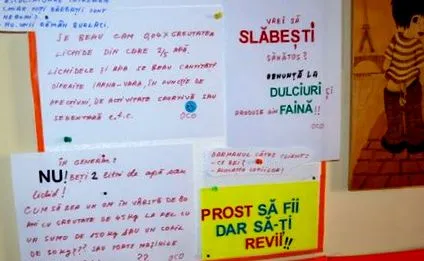 CHIAR NIȘTE BĂRBAȚI SUNT
NEBUNI?
NU. UNII RĂMÂN BURLACI.
SE BEAU CAM 0,04 X GREUTATEA
LICHIDE DIN CARE 2/3 APĂ.
LICHIDELE ȘI APA SE BEAU CANTITĂȚI
DIFERITE IARNA-VARA, ÎN FUNCȚIE DE
AFECȚIUNI, DE ACTIVITATE SPORTIVĂ SAU
SEDENTARĂ E.T.C.
OCO
VREI SĂ
SLĂBEȘTI
SĂNĂTOS?
RENUNȚĂ LA
DULCIURI ȘI
PRODUSE DIN FAINĂ!!
OCO
ÎN GENERAL?
NU! BEȚI 2 litri de apă sau
lichid!
CUM SĂ BEA UN OM ÎN VÂRSTĂ DE 80
ANI CU GREUTATE DE 45 KG LA FEL CU
UN SUMO DE 150 KG SAU UN COPIL
DE 30 KG??? SAU TOATE MAȘINILE
??
OCO
BARMANUL CĂTRE CLIENT:
- CE BEI?
PROST SĂ FII
DAR SĂ-ȚI
REVII!!